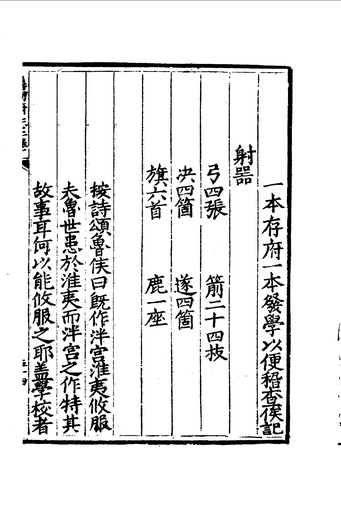 一本存府一本發學以便稽查俟記
射器
弓四張　箭二十四枝
决四箇　遂四箇
旗六首　鹿一座
按詩頌魯侯曰既作泮宫淮夷攸服
夫魯世患於淮夷而泮宫之作特其
故事耳何以能攸服之耶盖學校者